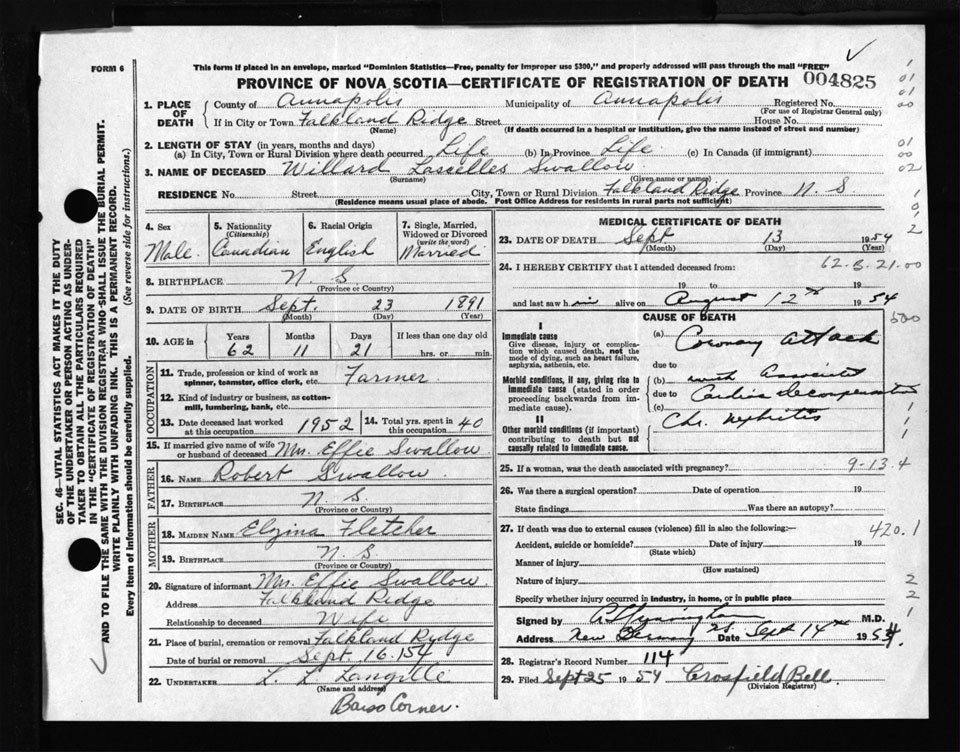 FORM 6
This form if placed in an envelope, marked "Dominion Statistics—Free, penalty for improper use $300," and properly addressed will pass through the mail "FREE"
PROVINCE OF NOVA SCOTIA—CERTIFICATE OF REGISTRATION OF DEATH 004825
1. PLACE OF DEATH County of Annapolis Municipality of Annapolis Registered No.
(For use of Registrar General only)
If in City or Town Falkland Ridge Street House No.
(Name) (If death occurred in a hospital or institution, give the name instead of street and number)
2. LENGTH OF STAY (in years, months and days)
(a) In City, Town or Rural Division where death occurred Life (b) In Province Life (c) In Canada (if immigrant)
3. NAME OF DECEASED Willard Lascelles Swallow
(Surname) (Given name or names)
RESIDENCE No. Street City, Town or Rural Division Falkland Ridge Province N. S
(Residence means usual place of abode. Post Office Address for residents in rural parts not sufficient)
4. Sex 5. Nationality (Citizenship) 6. Racial Origin 7. Single, Married, Widowed or Divorced (write the word)
Male. Canadian English Married
8. BIRTHPLACE N. S
(Province or Country)
9. DATE OF BIRTH Sept. 23 1891
(Month) (Day) (Year)
10. AGE in Years Months Days If less than one day old
62 11 21 hrs. or min.
OCCUPATION
11. Trade, profession or kind of work as spinner, teamster, office clerk, etc. Farmer
12. Kind of industry or business, as cotton-mill, lumbering, bank, etc.
13. Date deceased last worked at this occupation 1952 14. Total yrs. spent in this occupation 40
15. If married give name of wife or husband of deceased Mrs. Effie Swallow
FATHER
16. NAME Robert Swallow
17. BIRTHPLACE N. S.
(Province or Country)
MOTHER
18. MAIDEN NAME Elzina Fletcher
19. BIRTHPLACE N. S
(Province or Country)
20. Signature of informant Mrs. Effie Swallow
Address Falkland Ridge
Relationship to deceased Wife
21. Place of burial, cremation or removal Falkland Rydge
Date of burial or removal Sept. 16. 154
22. UNDERTAKER L. L Langille
(Name and address)
Barss Corner.
MEDICAL CERTIFICATE OF DEATH
23. DATE OF DEATH Sept 13 1954
(Month) (Day) (Year)
24. I HEREBY CERTIFY that I attended deceased from: 62-8-21.00
19 to 19
and last saw him alive on August 12th 1954
CAUSE OF DEATH
I
Immediate cause
Give disease, injury or complication which caused death, not the mode of dying, such as heart failure, asphyxia, asthenia, etc.
(a) Coronary attack
due to
Morbid conditions, if any, giving rise to immediate cause (stated in order proceeding backwards from immediate cause).
(b) with
due to
(c)
II
Other morbid conditions (if important) contributing to death but not causally related to immediate cause.
Chr. Nephritis
25. If a woman, was the death associated with pregnancy? 9-13.4
26. Was there a surgical operation? Date of operation 19
State findings Was there an autopsy?
27. If death was due to external causes (violence) fill in also the following:— 420.1
Accident, suicide or homicide? Date of injury 19
(State which)
Manner of injury
(How sustained)
Nature of injury
Specify whether injury occurred in industry, in home, or in public place
Signed by M.D.
Address New Germany NS Date Sept 14th 1954
28. Registrar's Record Number 114
29. Filed Sept 25 1954 Crosfield Bell
(Division Registrar)
SEC. 46—VITAL STATISTICS ACT MAKES IT THE DUTY
OF THE UNDERTAKER OR PERSON ACTING AS UNDER-
TAKER TO OBTAIN ALL THE PARTICULARS REQUIRED
IN THE "CERTIFICATE OF REGISTRATION OF DEATH"
AND TO FILE THE SAME WITH THE DIVISION REGISTRAR WHO SHALL ISSUE THE BURIAL PERMIT.
WRITE PLAINLY WITH UNFADING INK. THIS IS A PERMANENT RECORD.
Every item of information should be carefully supplied. (See reverse side for instructions.)